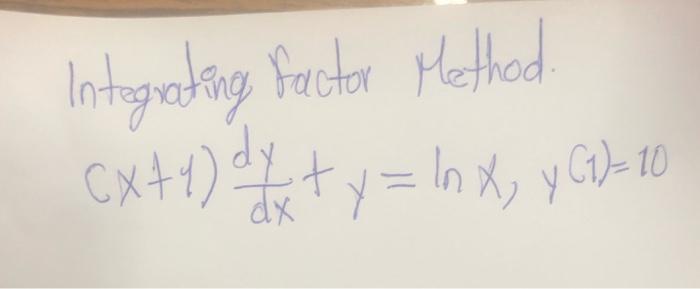 Integrating Factor Method.
(x+1) dy/dx + y = ln x, y(1)=10